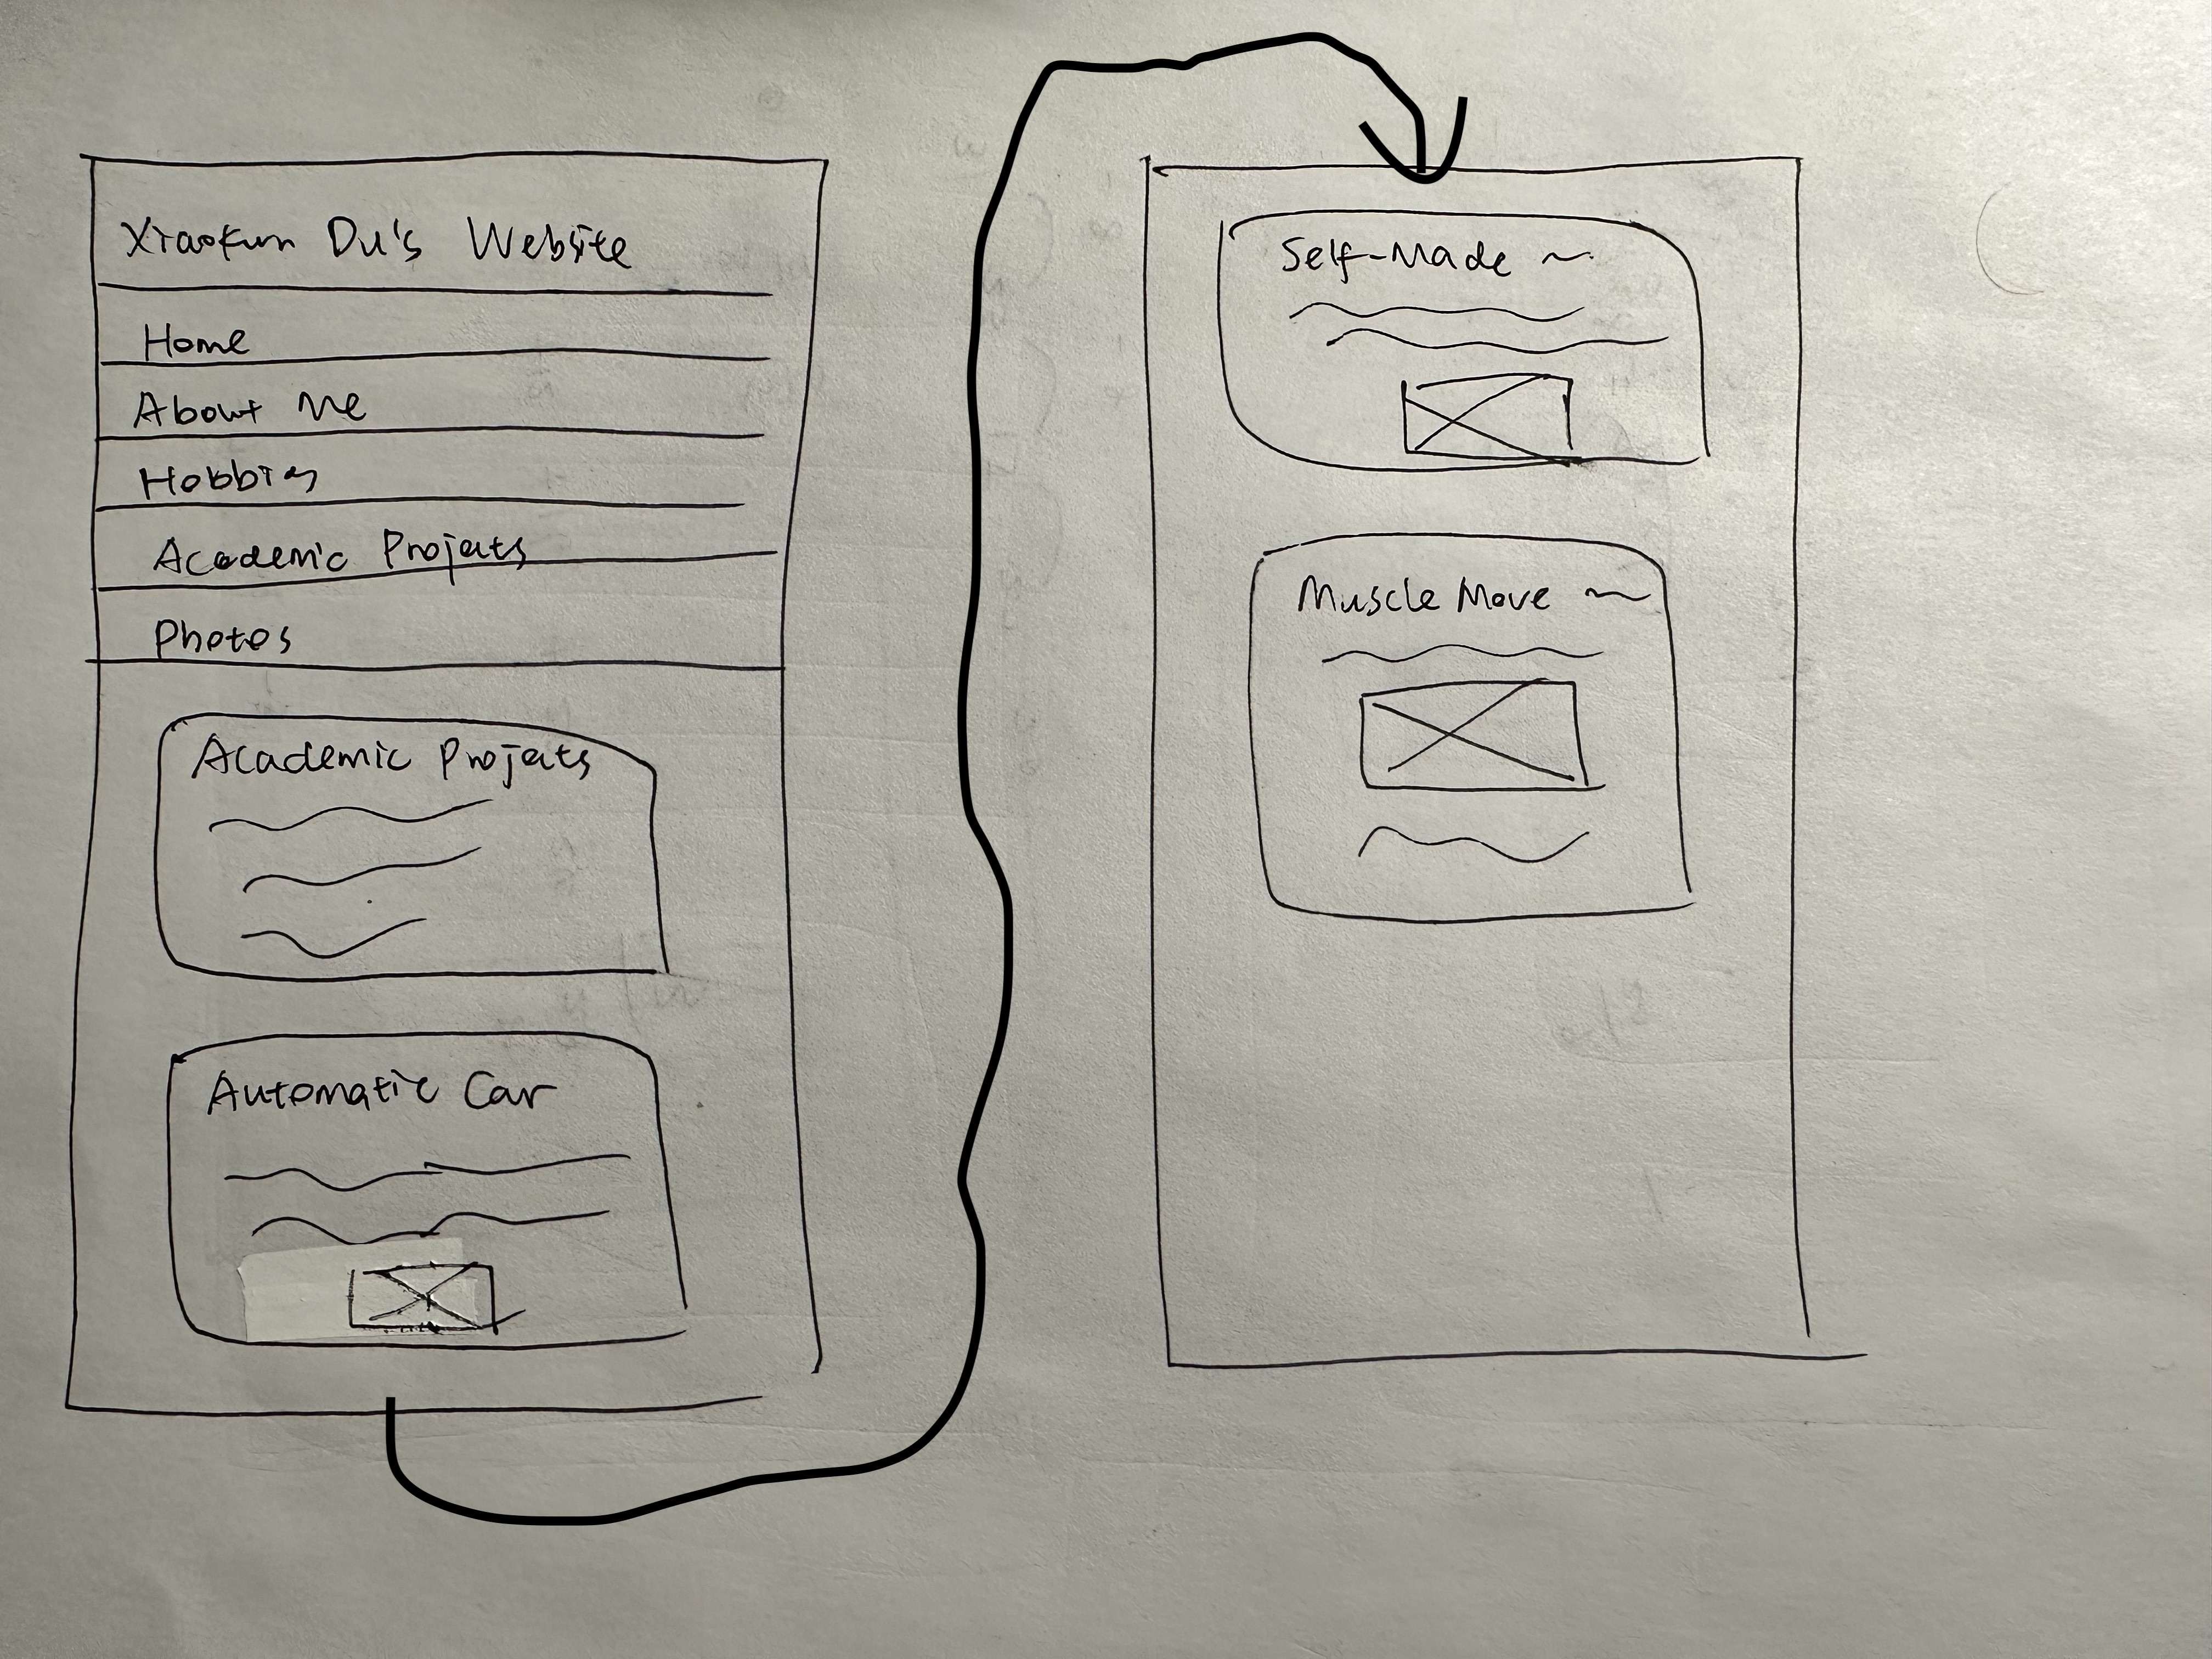 Xiaokun Du's Website
Home
About Me
Hobbies
Academic Projects
Photos
Academic Projects
Automatic Car
Self-Made ~
Muscle Move ~